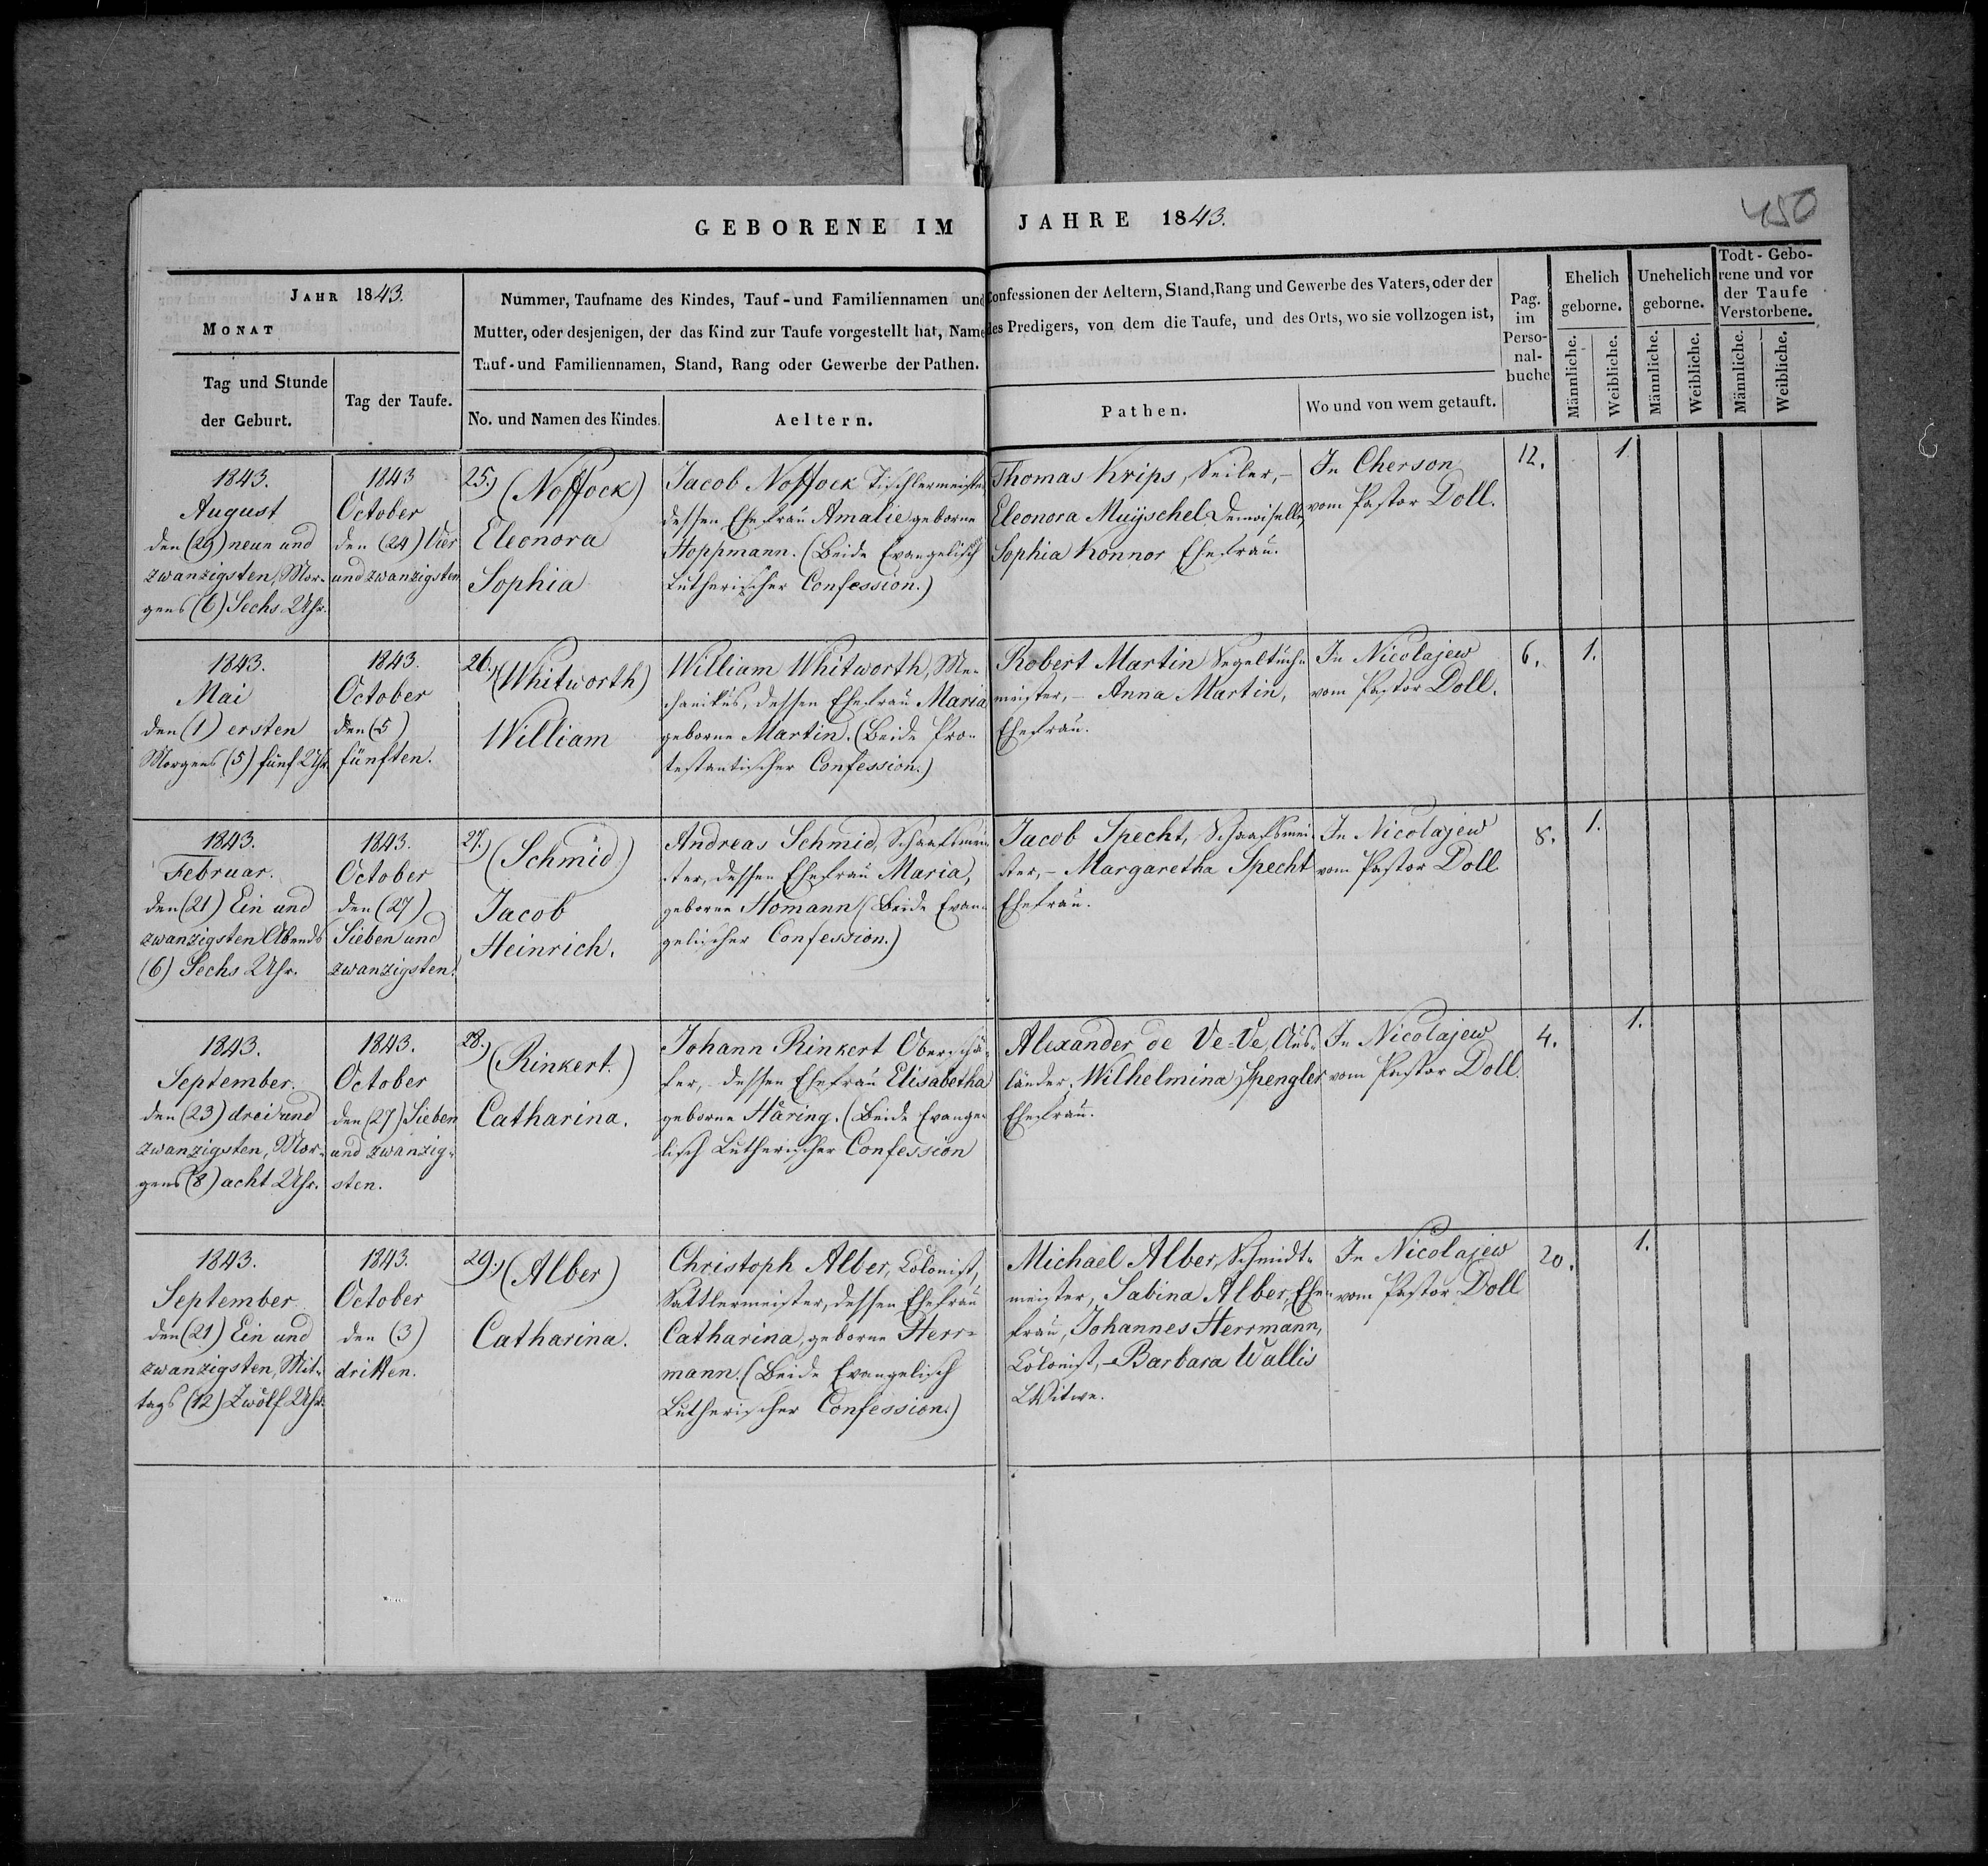 GEBORENE IM JAHRE 1843.
450
JAHR 1843.
MONAT
Tag und Stunde
der Geburt.
Tag der Taufe.
Nummer, Taufname des Kindes, Tauf- und Familiennamen und Confessionen der Aeltern, Stand, Rang und Gewerbe des Vaters, oder der
Mutter, oder desjenigen, der das Kind zur Taufe vorgestellt hat, Name des Predigers, von dem die Taufe, und des Orts, wo sie vollzogen ist,
Tauf- und Familiennamen, Stand, Rang oder Gewerbe der Pathen.
No. und Namen des Kindes.
Aeltern.
Pathen.
Wo und von wem getauft.
Pag.
im
Perso-
nal-
buche
Ehelich
geborne.
Männliche.
Weibliche.
Unehelich
geborne.
Männliche.
Weibliche.
Todt-Gebo-
rene und vor
der Taufe
Verstorbene.
Männliche.
Weibliche.
1843.
August
den (29) neun und
zwanzigsten, Mor-
gens (6) Sechs Uhr.
1843
October
den (24) Vier
und zwanzigsten
25.) (Noffock)
Eleonora
Sophia
Jacob Noffock Tischlermeister
dessen Ehefrau Amalie geborne
Hoppmann. (Beide Evangelisch
Lutherischer Confession.)
Thomas Krips, Seiler, -
Eleonora Muyschel Demoiselle,
Sophia Konnor Ehefrau.
In Cherson
vom Pastor Doll.
12.
1.
1843.
Mai
den (1) ersten
Morgens (5) fünf Uhr.
1843.
October
den (5)
fünften.
26.) (Whitworth)
William
William Whitworth, Me-
chanikus, dessen Ehefrau Maria
geborne Martin. (Beide Pro-
testantischer Confession.)
Robert Martin Segeltuch-
meister, - Anna Martin,
Ehefrau.
In Nicolajew
vom Pastor Doll.
6.
1.
1843.
Februar.
den (21) Ein und
zwanzigsten Abends
(6) Sechs Uhr.
1843.
October
den (27)
Sieben und
zwanzigsten.
27.) (Schmid)
Jacob
Heinrich.
Andreas Schmid, Schaafmei-
ster, dessen Ehefrau Maria,
geborne Homann (Beide Evan-
gelischer Confession.)
Jacob Specht, Schaafsmei-
ster, - Margaretha Specht
Ehefrau.
In Nicolajew
vom Pastor Doll
8.
1.
1843.
September.
den (23) drei und
zwanzigsten, Mor-
gens (8) acht Uhr.
1843.
October
den (27) Sieben
und zwanzig-
sten.
28.) (Rinkert.)
Catharina.
Johann Rinkert Oberschä-
fer, - dessen Ehefrau Elisabetha
geborne Häring. (Beide Evange-
lisch Lutherischer Confession
Alexander de Ve-Ve, Aus-
länder, Wilhelmina Spengler
Ehefrau.
In Nicolajew
vom Pastor Doll.
4.
1.
1843.
September
den (21) Ein und
zwanzigsten, Mit-
tags (12) Zwölf Uhr.
1843.
October
den (3)
dritten.
29.) (Alber)
Catharina.
Christoph Alber, Colonist,
Sattlermeister, dessen Ehefrau
Catharina, geborne Herr-
mann. (Beide Evangelisch
Lutherischer Confession.)
Michael Alber, Schmidt-
meister, Sabina Alber, Ehe-
frau, Johannes Herrmann,
Colonist, - Barbara Wallis
Witwe.
In Nicolajew
vom Pastor Doll
20.
1.